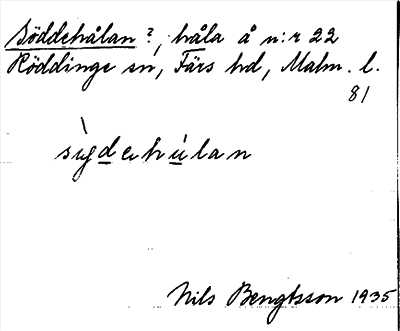 Söddehålan?, håla å n:r 22
Röddinge sn, Färs hd, Malm. l.
81
sìgdehùlan
Nils Bengtsson 1935